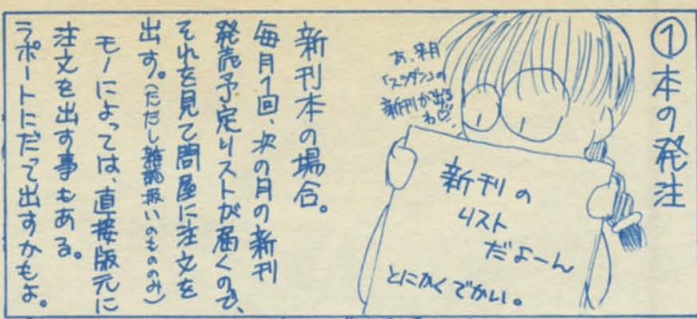 ①本の発注
あ、来月
「スラダン」の
新刊が出る
わ♡
新刊の
リスト
だよーん
とにかくでかい。
新刊本の場合。
毎月1回、次の月の新刊
発売予定リストが届くので、
それを見て問屋に注文を
出す。(ただし雑誌扱いのもののみ)
モノによっては、直接版元に
注文を出す事もある。
ラポートにだって出すかもよ。